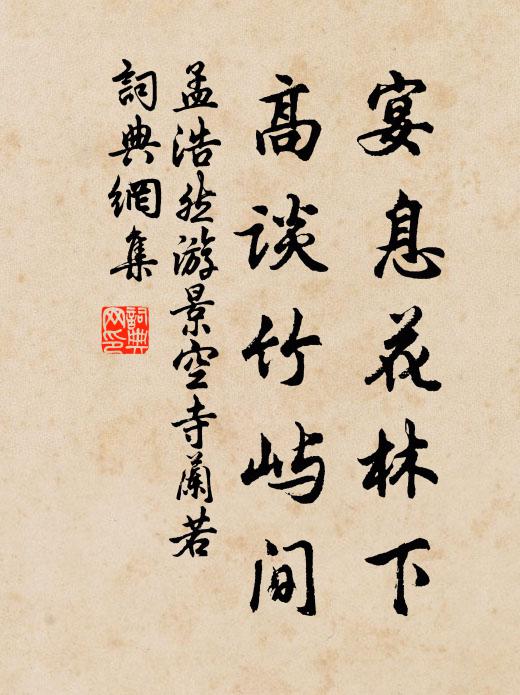 宴息花林下
高谈竹屿间
孟浩然游景空寺蘭若
詞典網集
詞典网印